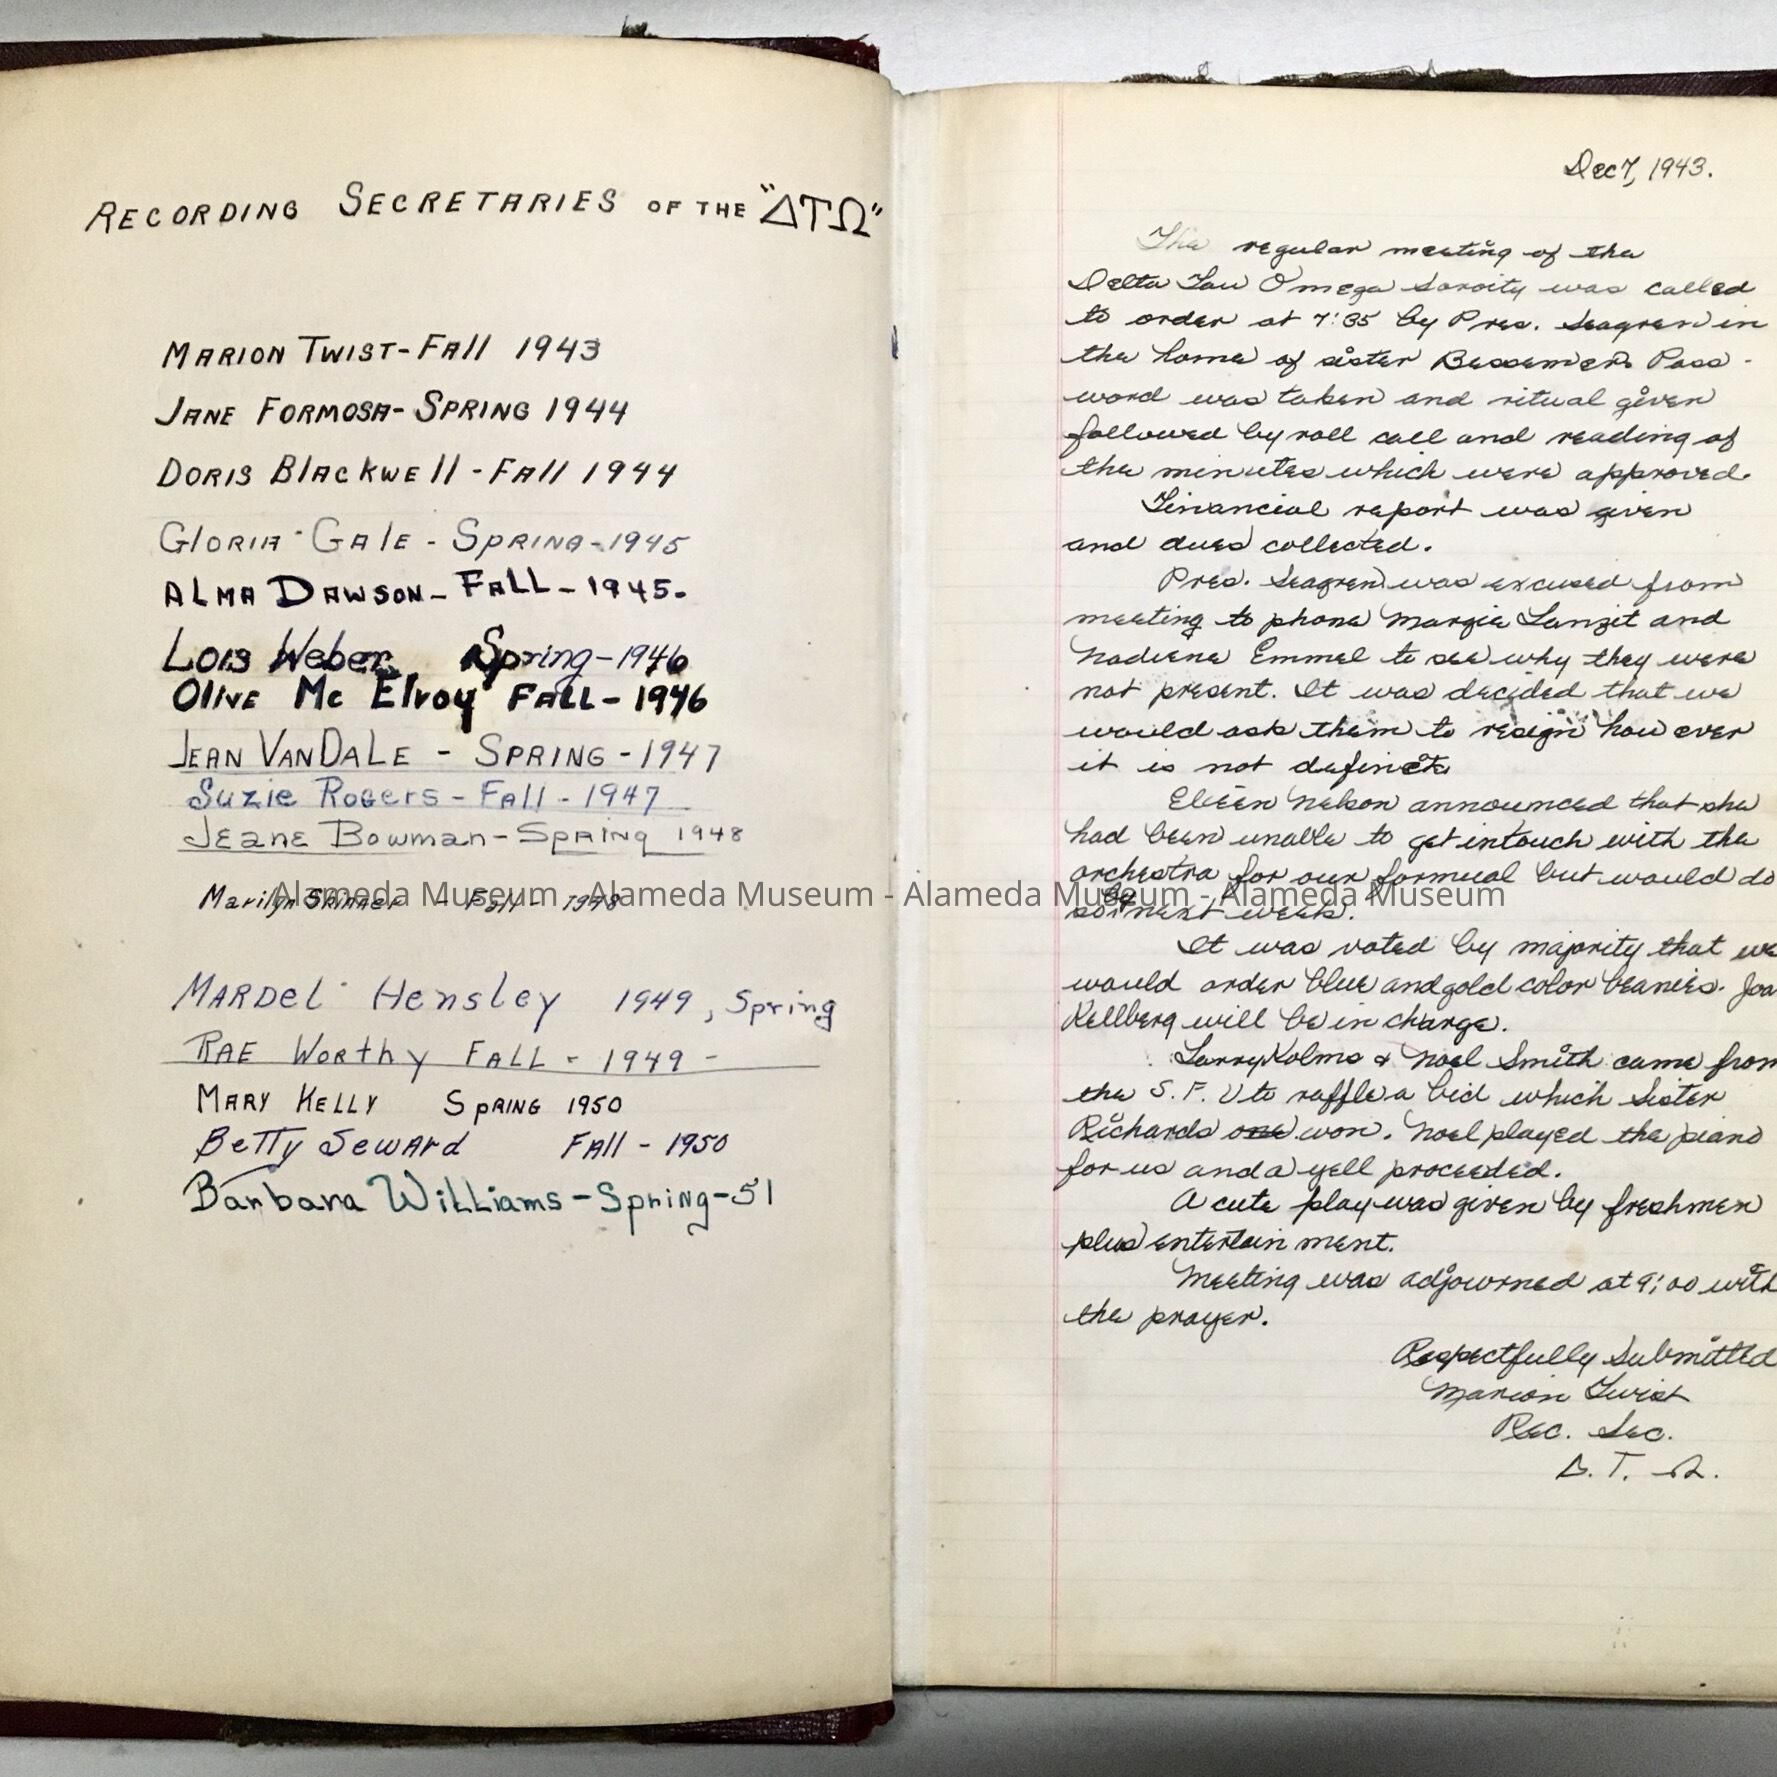 RECORDING SECRETARIES OF THE "ΔTΩ"
MARION TWIST-FAll 1943
JANE FORMOSA- SPRING 1944
DORIS BlACKWEll - FAll 1944
GlORIA GAlE - SPRING - 1945
ALMA DAWSON - FALL - 1945.
Lois Weber Spring - 1946
OlIVE Mc Elroy FALL - 1946
JEAN VANDALE - SPRING - 1947
Suzie Rogers - Fall - 1947
JEANE Bowman - SPRING 1948
Marilyn Skinner - Fall - 1948
MARDEl Hensley 1949, Spring
RAE Worthy FALL - 1949 -
MARY KELLY SPRING 1950
BeTTy SewARd FAll - 1950
Barbara WiLLiams - Spring - 51
Dec 7, 1943.
The regular meeting of the
Delta Tau Omega Soroity was called
to order at 7:35 by Pres. Seagren in
the home of sister Bessemer. Pass-
word was taken and ritual given
followed by roll call and reading of
the minutes which were approved.
Financial report was given
and dues collected.
Pres. Seagren was excused from
meeting to phone Margie Langit and
Nadiene Emmel to see why they were
not present. It was decided that we
would ask them to resign how ever
it is not definite
Eileen Nelson announced that she
had been unable to get intouch with the
orchestra for our formual but would do
so by next week.
It was voted by majority that we
would order blue and gold color beanies. Joa
Kellberg will be in charge.
Larry Kolms & Noel Smith came from
the S. F. U to raffle a bid which Sister
Richards won. Noel played the piano
for us and a yell proceeded.
A cute play was given by freshmen
plus entertainment.
Meeting was adjourned at 9:00 with
the prayer.
Respectfully Submitted
Marion Twist
Rec. Sec.
D. T. Ω.
Alameda Museum - Alameda Museum - Alameda Museum - Alameda Museum